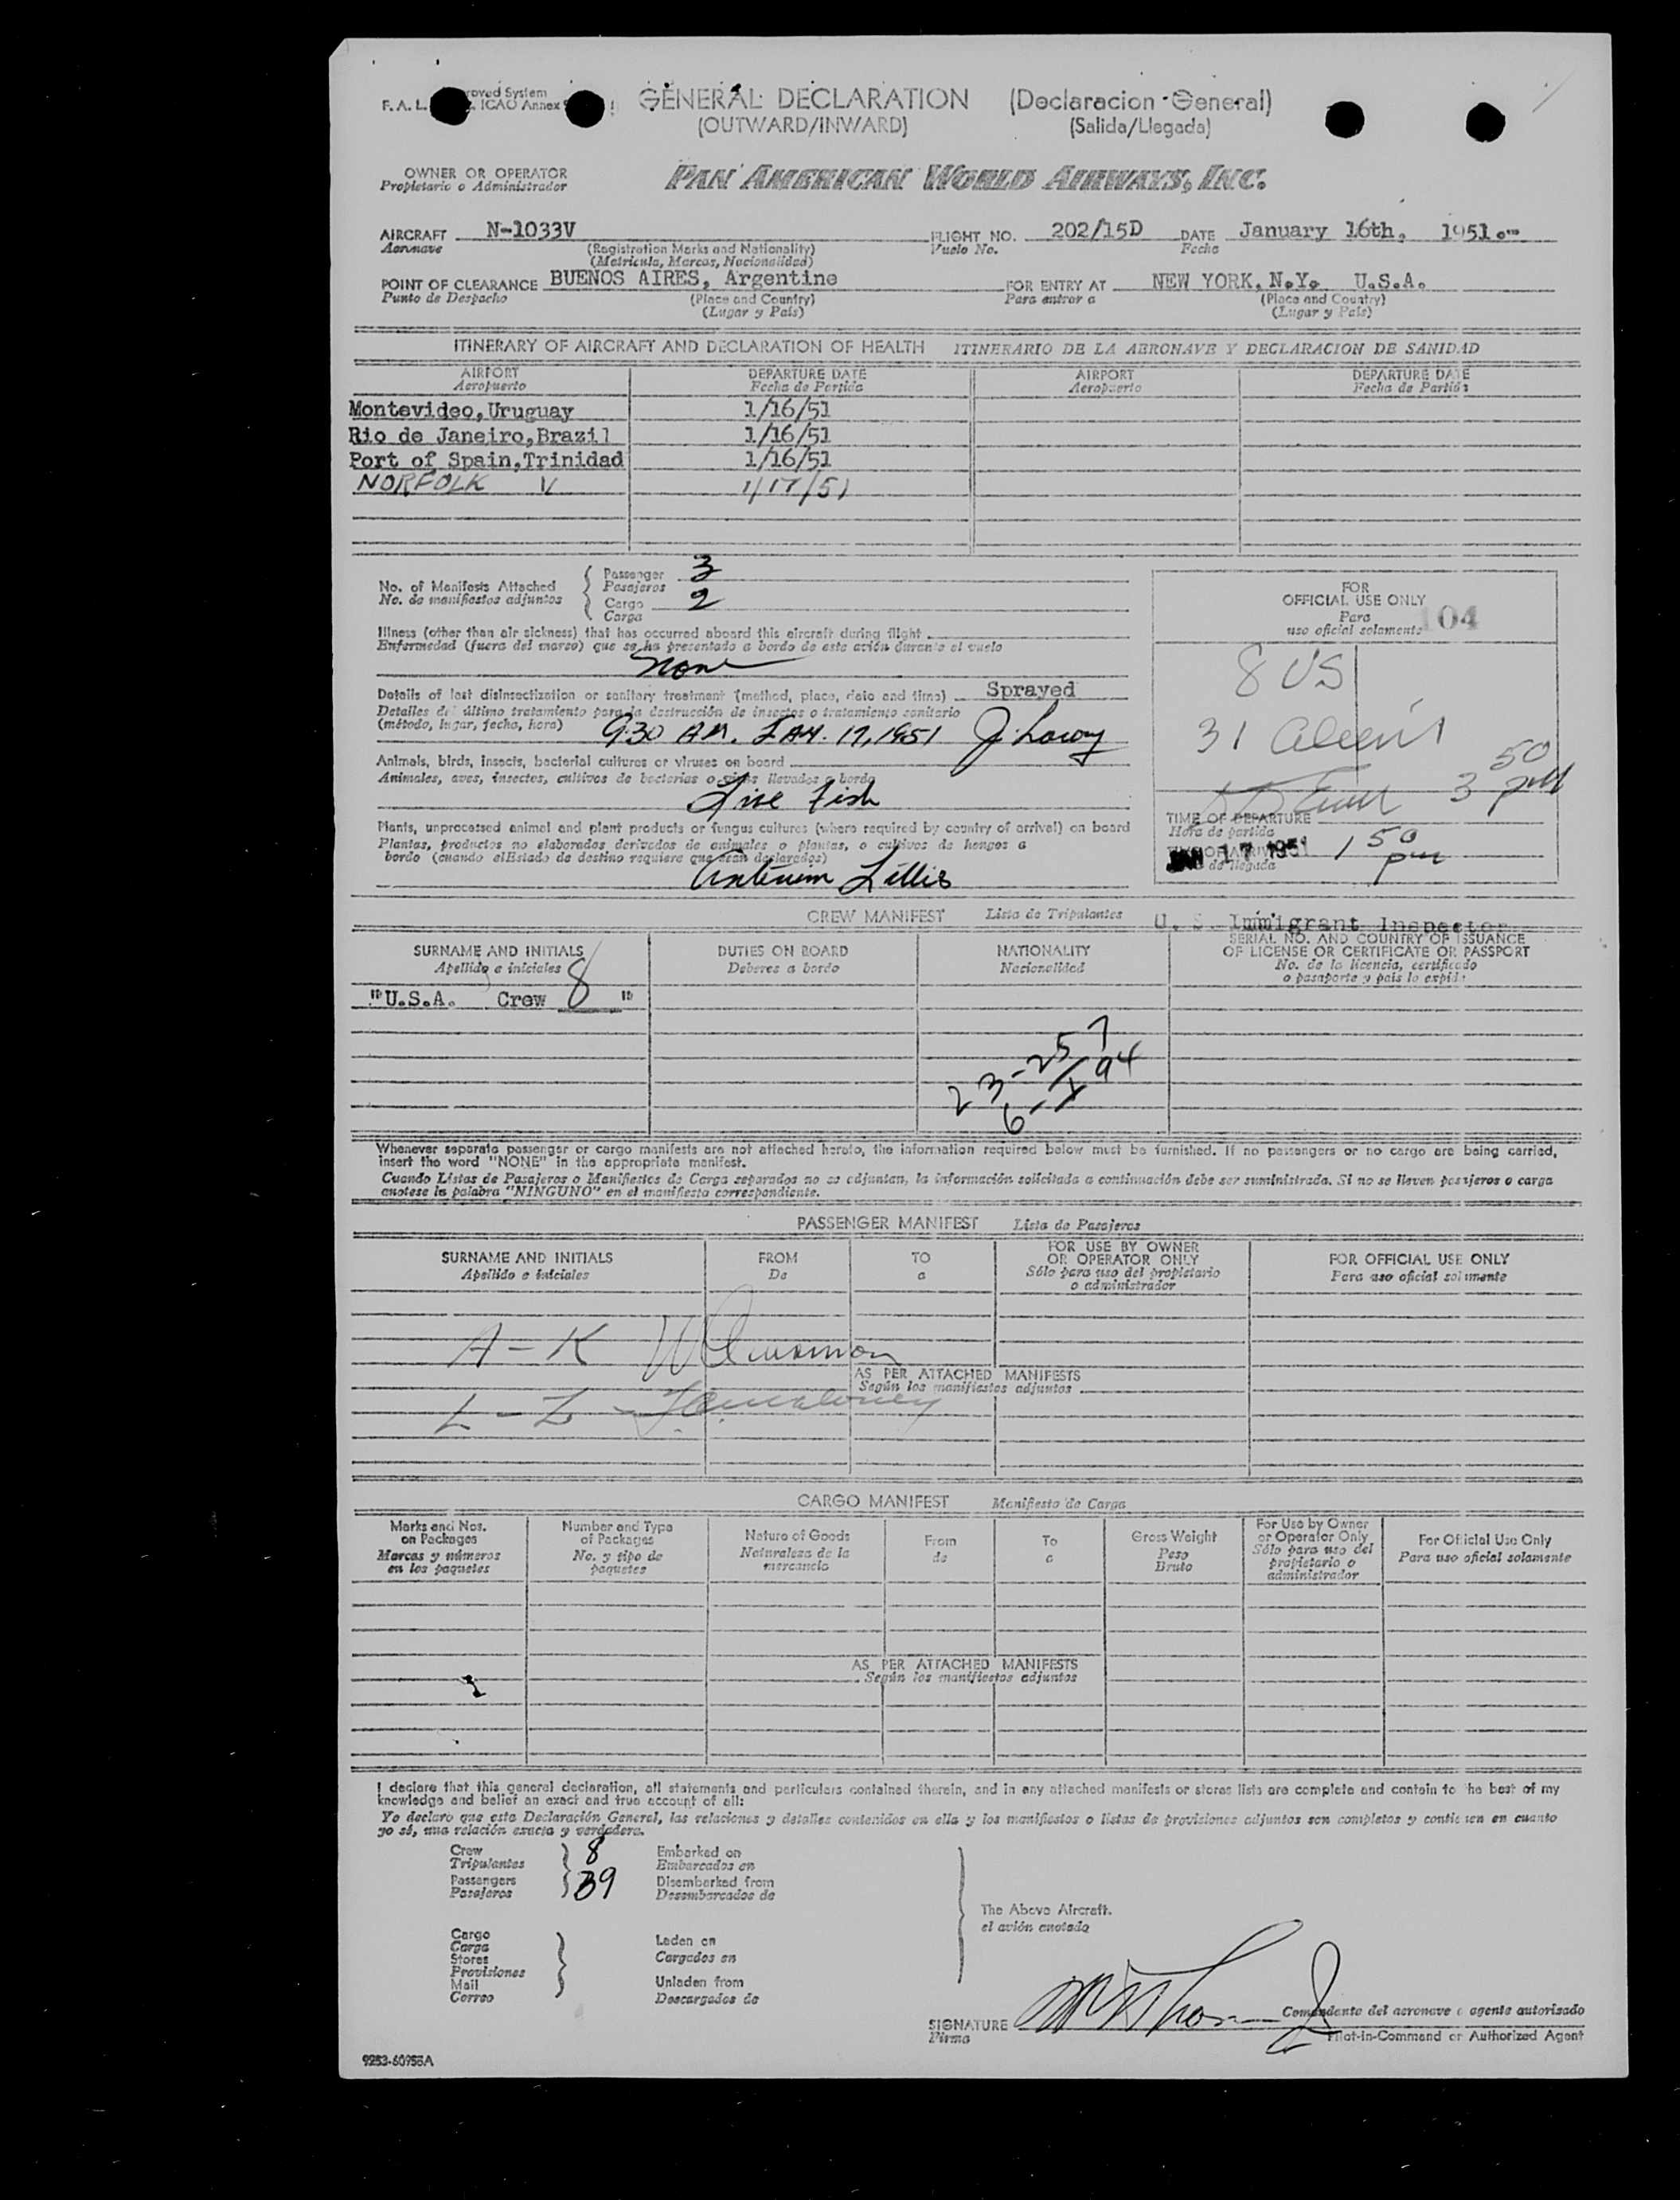 F. A. L. roved System
ICAO Annex
GENERAL DECLARATION (Declaracion General)
(OUTWARD/INWARD) (Salida/Llegada)
OWNER OR OPERATOR
Propietario o Administrador
PAN AMERICAN WORLD AIRWAYS, INC.
AIRCRAFT N-1033V FLIGHT NO. 202/15D DATE January 16th, 1951.
Aeronave (Registration Marks and Nationality) Vuelo No. Fecha
(Matricula, Marcas, Nacionalidad)
POINT OF CLEARANCE BUENOS AIRES, Argentine FOR ENTRY AT NEW YORK, N.Y. U.S.A.
Punto de Despacho (Place and Country) Para entrar a (Place and Country)
(Lugar y País) (Lugar y País)
ITINERARY OF AIRCRAFT AND DECLARATION OF HEALTH ITINERARIO DE LA AERONAVE Y DECLARACION DE SANIDAD
AIRPORT DEPARTURE DATE AIRPORT DEPARTURE DATE
Aeropuerto Fecha de Partida Aeropuerto Fecha de Partida
Montevideo,Uruguay 1/16/51
Rio de Janeiro,Brazil 1/16/51
Port of Spain,Trinidad 1/16/51
NORFOLK V 1/17/51
No. of Manifests Attached
No. de manifiestos adjuntos
Passenger 3
Pasajeros
Cargo 2
Carga
FOR
OFFICIAL USE ONLY
Para
uso oficial solamente 104
Illness (other than air sickness) that has occurred aboard this aircraft during flight
Enfermedad (fuera del mareo) que se ha presentado a bordo de este avión durante el vuelo
None
8 US
Details of last disinsectization or sanitary treatment (method, place, date and time) Sprayed
Detalles del último tratamiento para la destrucción de insectos o tratamiento sanitario
(método, lugar, fecha, hora) 9:30 AM. JAN. 17, 1951 J. Lowry
31 aliens
Animals, birds, insects, bacterial cultures or viruses on board
Animales, aves, insectos, cultivos de bacterias o virus llevados a bordo
Live Fish
3 50 pM
Plants, unprocessed animal and plant products or fungus cultures (where required by country of arrival) on board
Plantas, productos no elaborados derivados de animales o plantas, o cultivos de hongos a
bordo (cuando elEstado de destino requiere que sean declarados)
Lillis
TIME OF DEPARTURE
Hora de partida
JAN 17 1951 1 50 pm
de llegada
CREW MANIFEST Lista de Tripulantes
U. S. Immigrant Inspector
SURNAME AND INITIALS DUTIES ON BOARD NATIONALITY SERIAL NO. AND COUNTRY OF ISSUANCE
OF LICENSE OR CERTIFICATE OR PASSPORT
Apellido e iniciales Deberes a bordo Nacionalidad No. de la licencia, certificado
o pasaporte y pais lo expide
"U.S.A. Crew 8 "
23-257
6-I 94
Whenever separate passenger or cargo manifests are not attached hereto, the information required below must be furnished. If no passengers or no cargo are being carried,
insert the word "NONE" in the appropriate manifest.
Cuando Listas de Pasajeros o Manifiestos de Carga separados no se adjuntan, la información solicitada a continuación debe ser suministrada. Si no se lleven pasajeros o carga
anotese la palabra "NINGUNO" en el manifiesto correspondiente.
PASSENGER MANIFEST Lista de Pasajeros
SURNAME AND INITIALS FROM TO FOR USE BY OWNER
OR OPERATOR ONLY FOR OFFICIAL USE ONLY
Apellido e iniciales De a Sólo para uso del propietario
o administrador Para uso oficial solamente
A - K
AS PER ATTACHED MANIFESTS
Según los manifiestos adjuntos
L - Z
CARGO MANIFEST Manifiesto de Carga
Marks and Nos.
on Packages
Marcas y números
en los paquetes
Number and Type
of Packages
No. y tipo de
paquetes
Nature of Goods
Naturaleza de la
mercancia
From
de
To
a
Gross Weight
Peso
Bruto
For Use by Owner
or Operator Only
Sólo para uso del
propietario o
administrador
For Official Use Only
Para uso oficial solamente
AS PER ATTACHED MANIFESTS
Según los manifiestos adjuntos
I declare that this general declaration, all statements and particulars contained therein, and in any attached manifests or stores lists are complete and contain to the best of my
knowledge and belief an exact and true account of all:
Yo declaro que esta Declaración General, las relaciones y detalles contenidos en ella y los manifiestos o listas de provisiones adjuntos son completos y contienen en cuanto
yo sé, una relación exacta y verdadera.
Crew 8 Embarked on
Tripulantes Embarcados en
Passengers 39 Disembarked from
Pasajeros Desembarcados de
The Above Aircraft.
el avión anotado
Cargo
Carga
Stores
Provisiones
Mail
Correo
Laden on
Cargados en
Unladen from
Descargados de
SIGNATURE
Firma
Comandante del aeronave o agente autorizado
Pilot-in-Command or Authorized Agent
9253-60955A